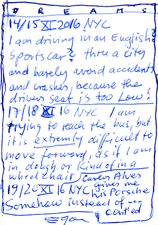 DREAMS
14/15 XI 2016 NYC
I am driving in an English
Sports car? thru a city
and barely avoid accidents
and crashes, because the
drivers seat is too low!
17/18 XI 16 NYC I am
trying to reach the bus, but
it is extremely difficult to
move forward, as if I am
in dough or kind of in a
wheelchair
19/20 XI 16 NYC gives me
his Porsche
Somehow instead of